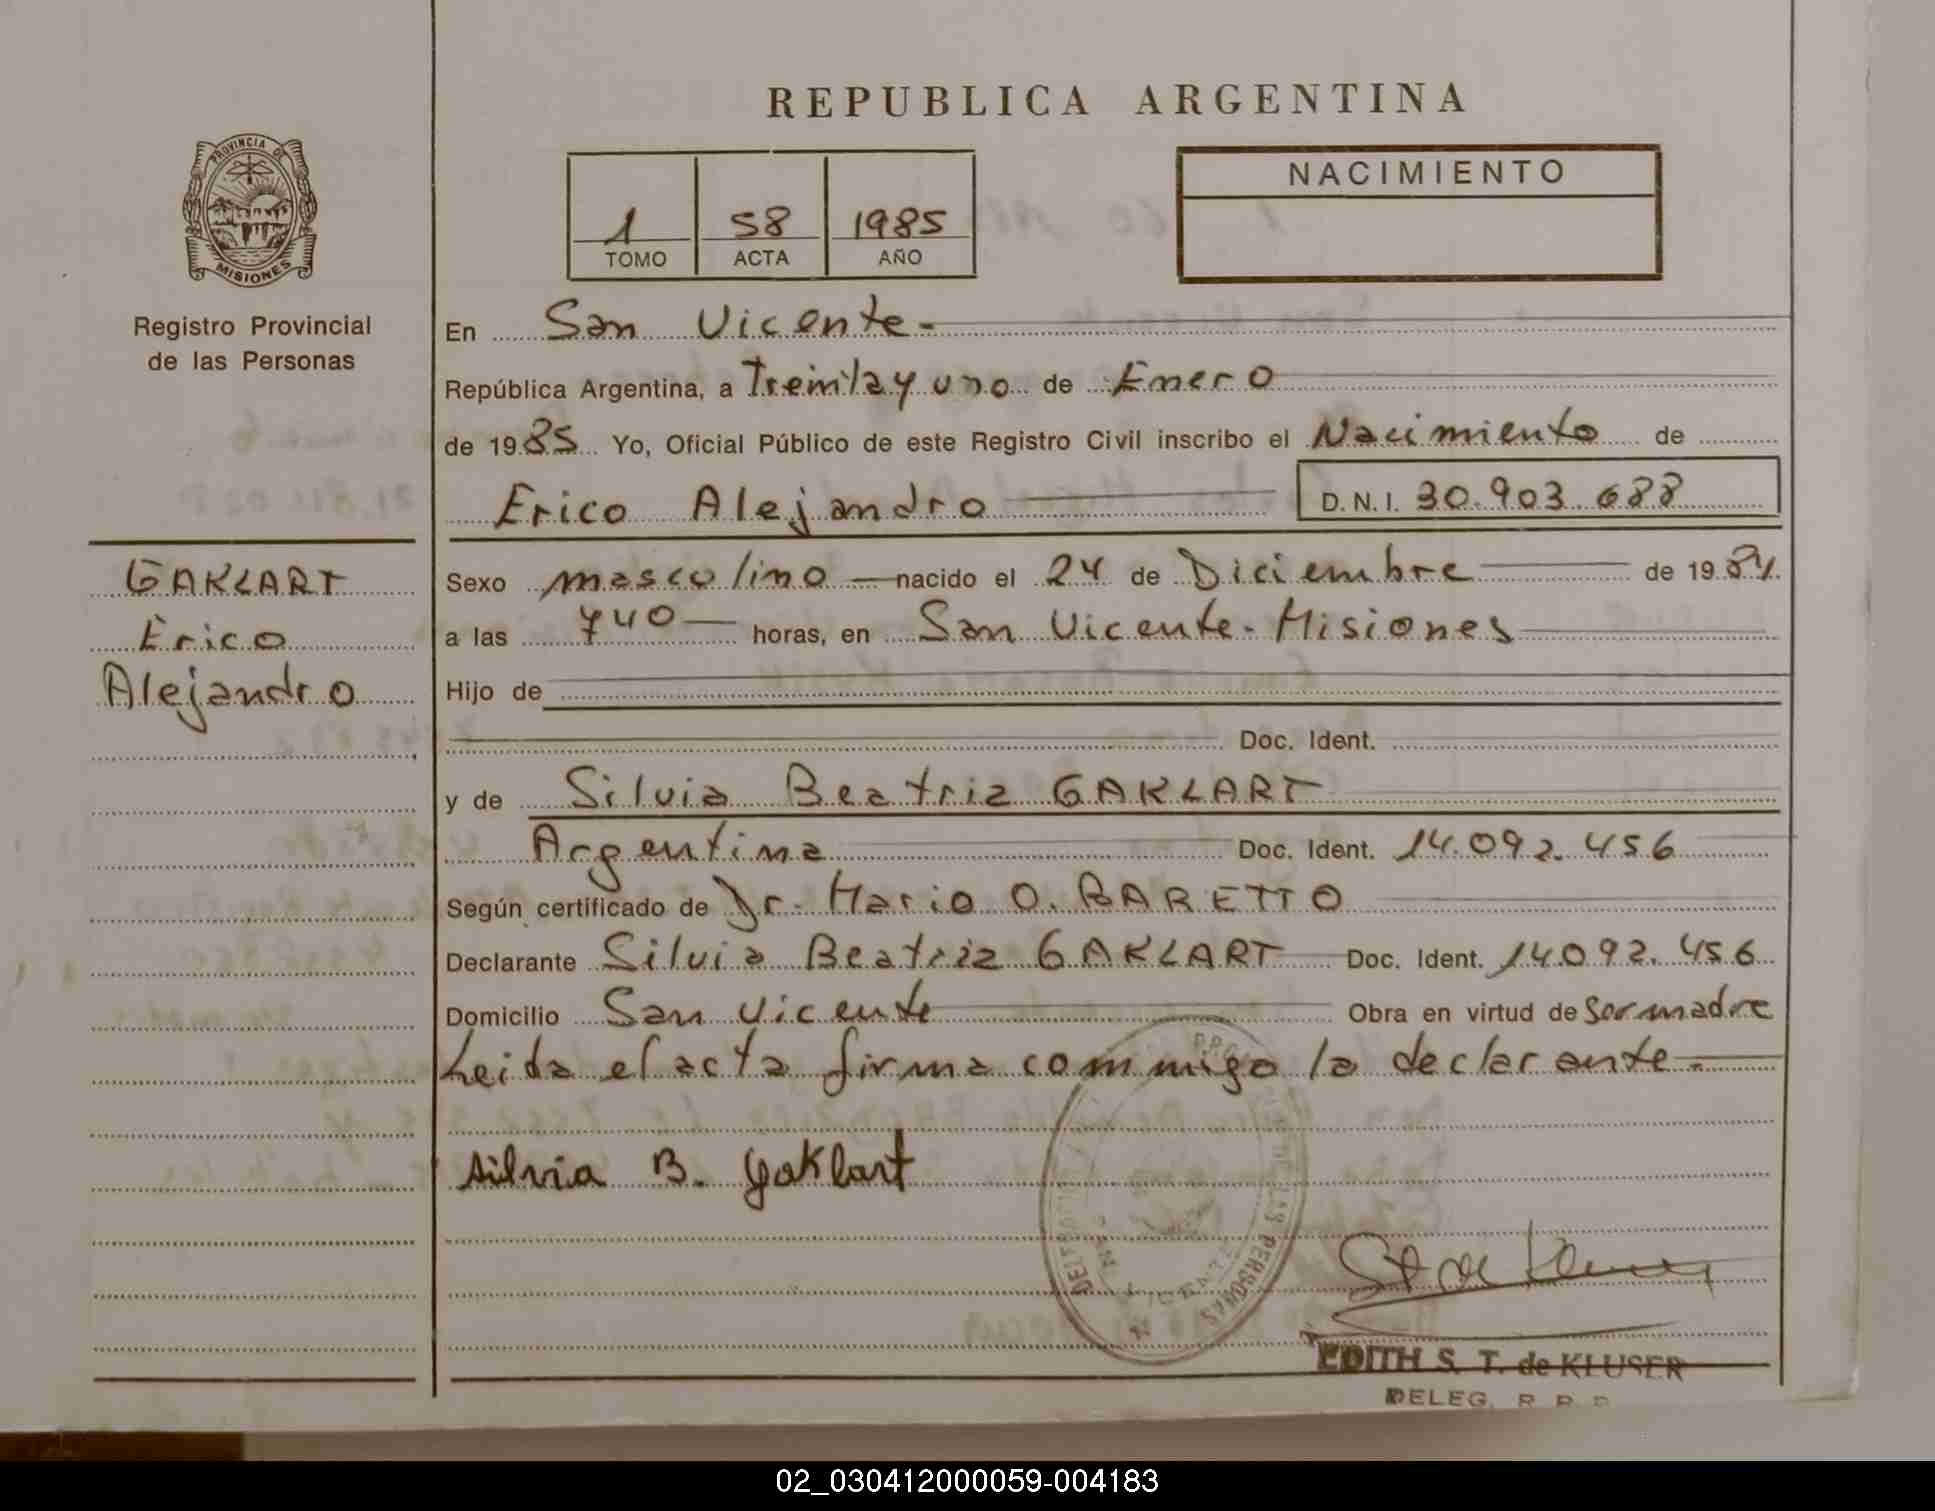 REPUBLICA ARGENTINA
PROVINCIA DE
MISIONES
Registro Provincial
de las Personas
1 58 1985
TOMO ACTA AÑO
NACIMIENTO
En San Vicente-
República Argentina, a Treinta y uno de Enero
de 1985 Yo, Oficial Público de este Registro Civil inscribo el Nacimiento de
Erico Alejandro D.N.I. 30.903.688
GAKLART
Erico
Alejandro
Sexo masculino nacido el 24 de Diciembre de 1984
a las 740 horas, en San Vicente-Misiones
Hijo de
Doc. Ident.
y de Silvia Beatriz GAKLART
Argentina Doc. Ident. 14.092.456
Según certificado de Dr. Mario O. BARETTO
Declarante Silvia Beatriz GAKLART Doc. Ident. 14.092.456
Domicilio San Vicente Obra en virtud de ser madre
Leida el acta firma conmigo la declarante-
Silvia B. Gaklart
DE LAS PERSONAS
SAN VICENTE
EDITH S. T. de KLUSER
DELEG. R. P. P.
02_030412000059-004183